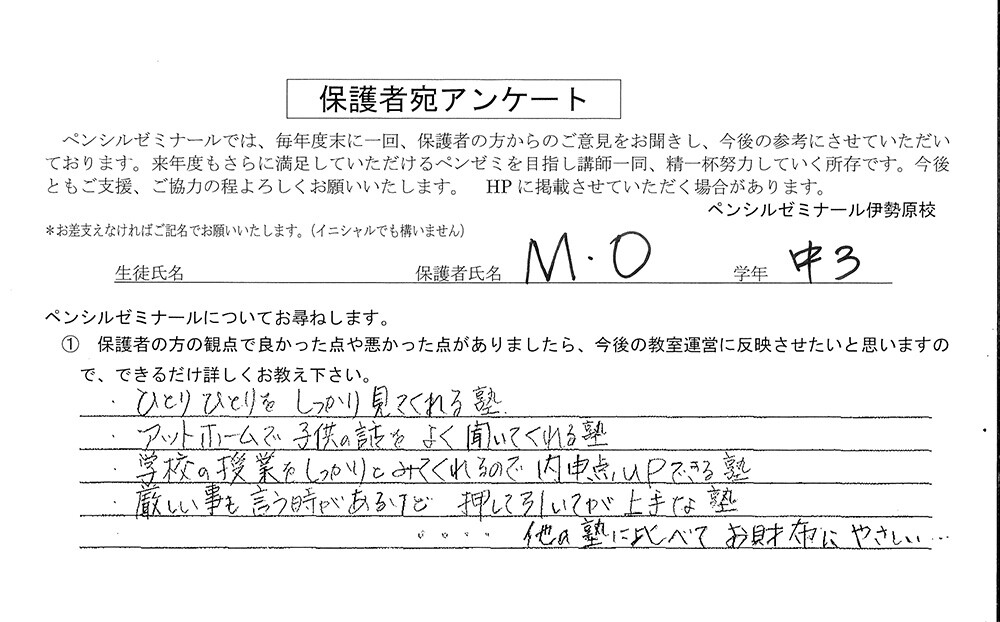 保護者宛アンケート
ペンシルゼミナールでは、毎年度末に一回、保護者の方からのご意見をお聞きし、今後の参考にさせていただい
ております。来年度もさらに満足していただけるペンゼミを目指し講師一同、精一杯努力していく所存です。今後
ともご支援、ご協力の程よろしくお願いいたします。 HPに掲載させていただく場合があります。
ペンシルゼミナール伊勢原校
*お差支えなければご記名でお願いいたします。(イニシャルでも構いません)
生徒氏名 保護者氏名 M・O 学年 中3
ペンシルゼミナールについてお尋ねします。
① 保護者の方の観点で良かった点や悪かった点がありましたら、今後の教室運営に反映させたいと思いますの
で、できるだけ詳しくお教え下さい。
・ひとりひとりを しっかり見てくれる塾
・アットホームで 子供の話を よく聞いてくれる塾
・学校の授業をしっかりとみてくれるので内申点UPできる塾
・厳しい事も言う時があるけど 押して引いてが上手な塾
・・・・ 他の塾に比べて お財布に やさしい…